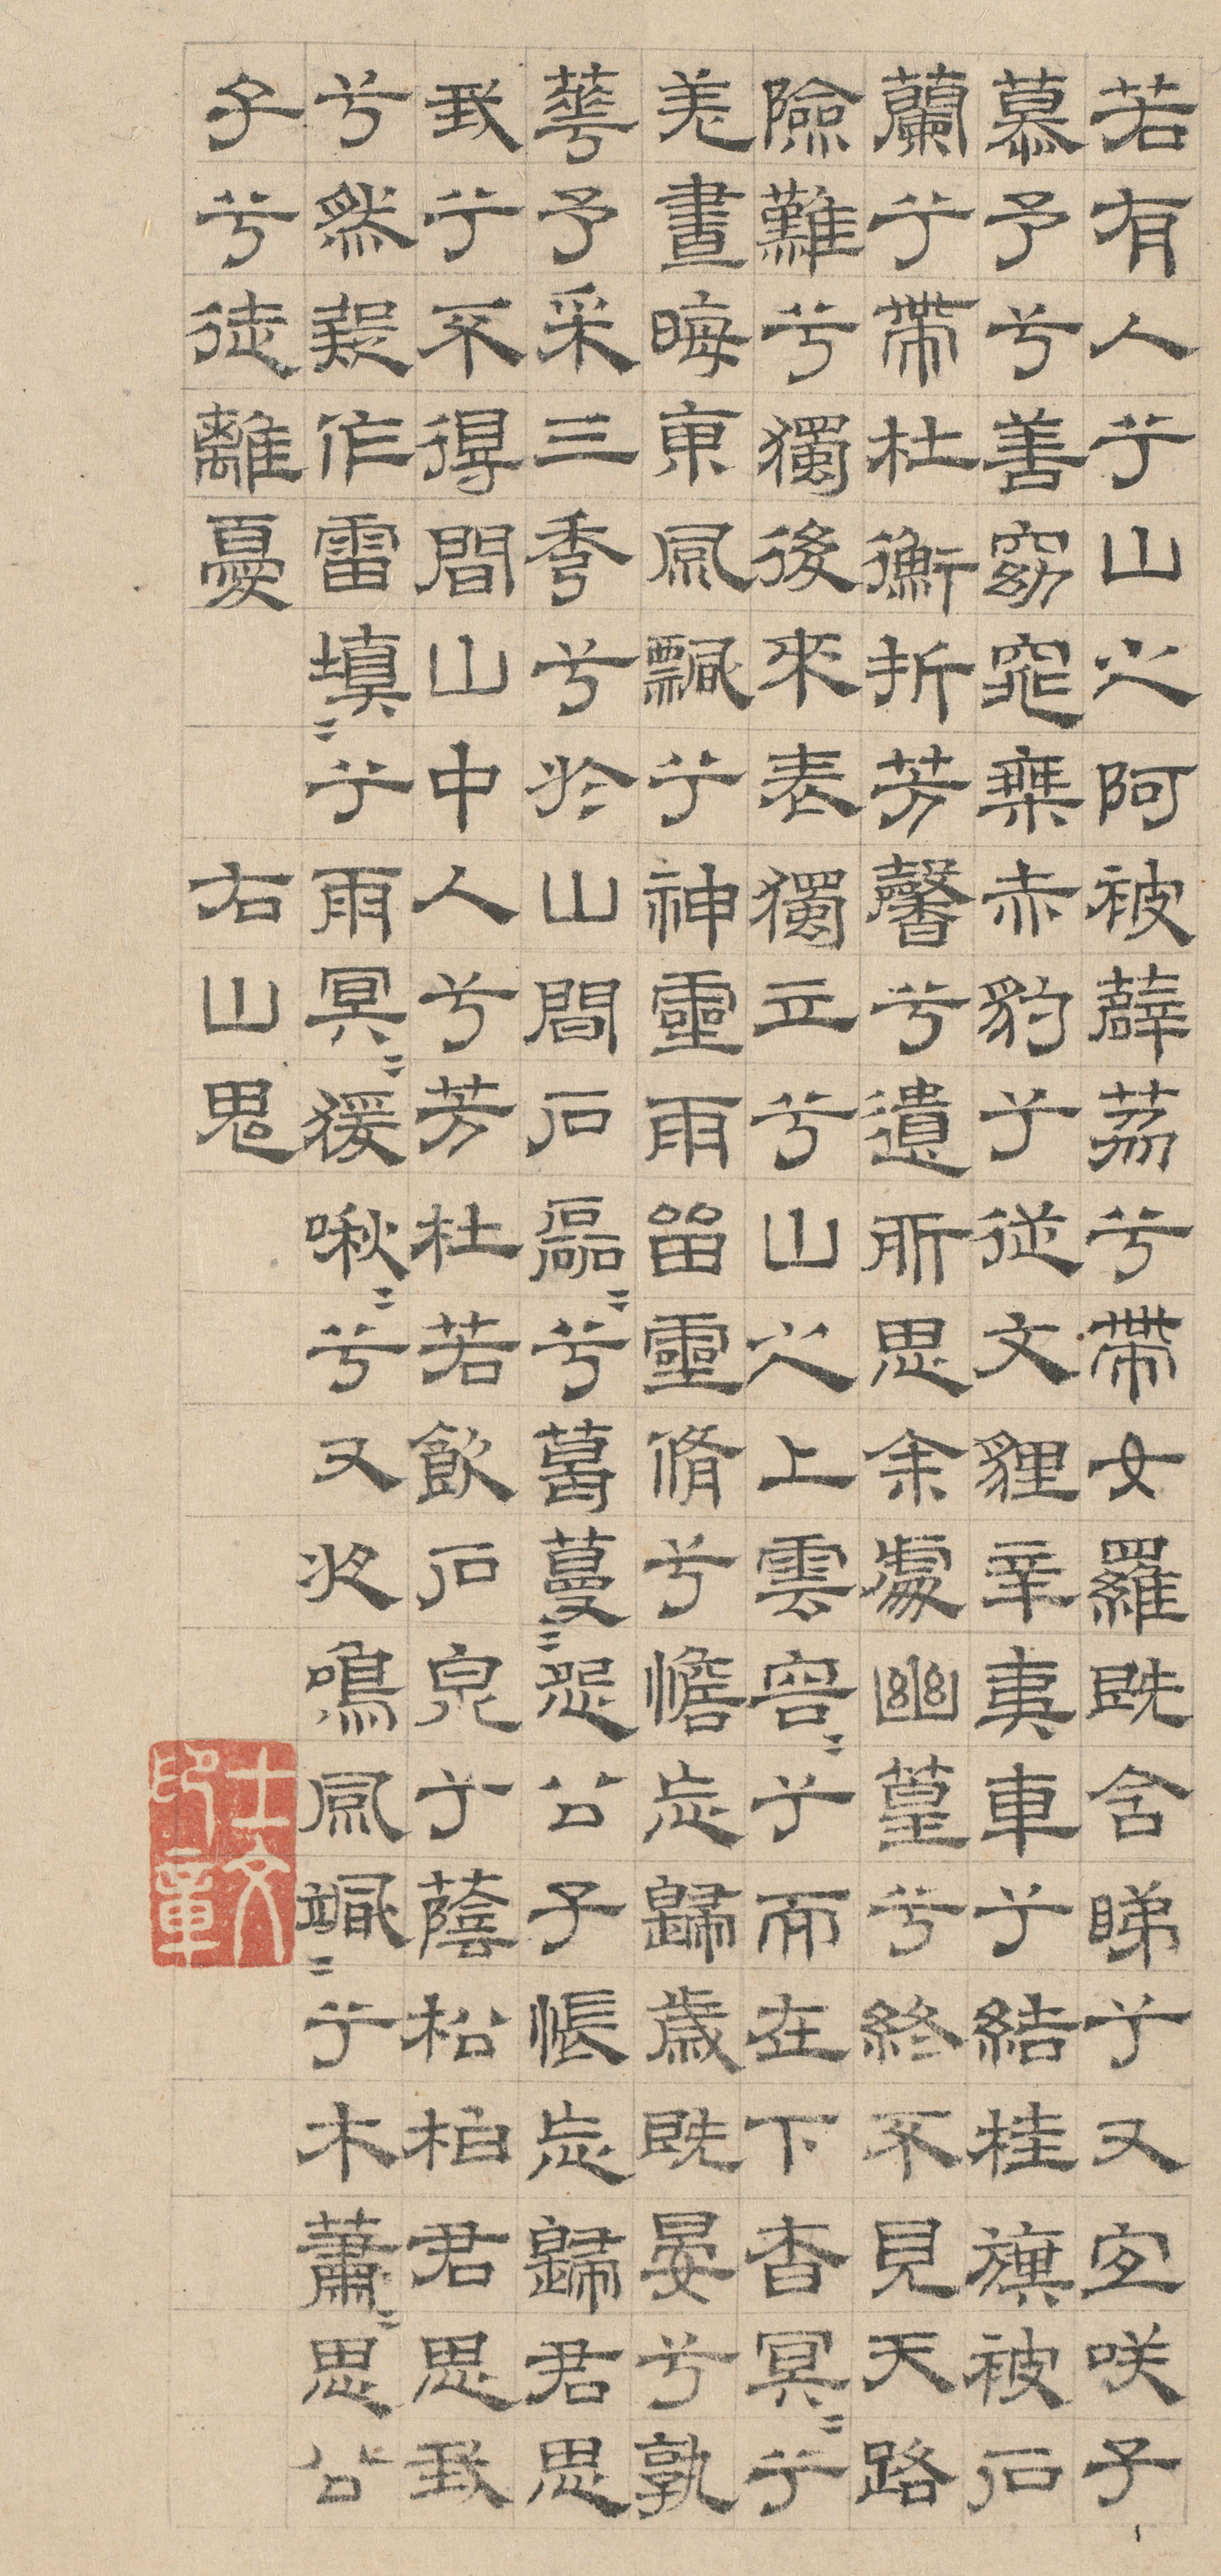 若有人兮山之阿被薜荔兮帶女羅既含睇兮又宜咲子
慕予兮善窈窕椉赤豹兮從文貍辛夷車兮結桂旗被石
蘭兮帶杜衡折芳馨兮遺所思余處幽篁兮終不見天路
險難兮獨後來表獨立兮山之上雲容〻兮而在下杳冥〻兮
羌晝晦東風飄兮神靈雨畱靈脩兮憺忘歸歲既晏兮孰
華予采三秀兮於山間石磊〻兮葛蔓〻怨公子悵忘歸君思
我兮不得間山中人兮芳杜若飲石泉兮蔭松柏君思我
兮然疑作雷填〻兮雨冥〻猨啾〻兮又夜鳴風颯〻兮木蕭〻思公
子兮徒離憂 右山鬼
士文印章